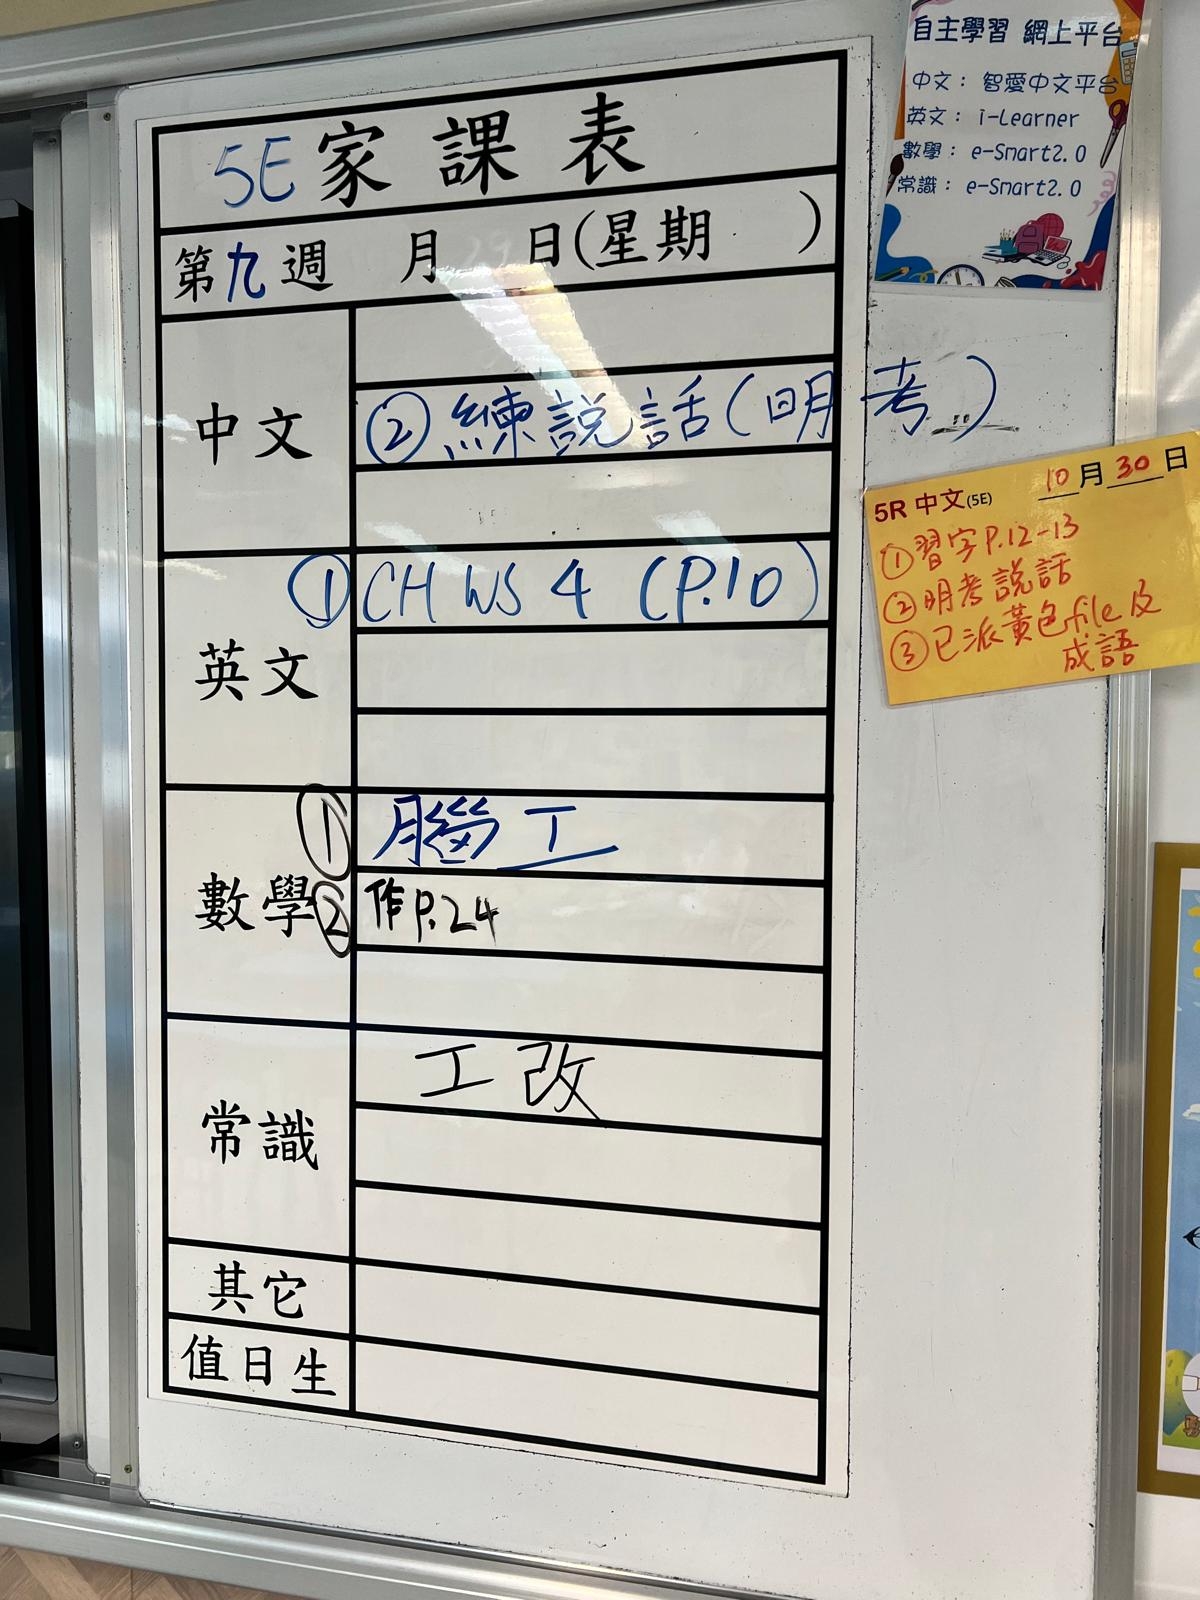 5E家課表
第九週 月 日(星期 )
中文
②練說話(明考)
英文
①CH WS 4 (P.10)
數學
①腦工
②作P.24
常識
工改
其它
值日生
自主學習 網上平台
中文： 智愛中文平台
英文： i-Learner
數學： e-Smart2.0
常識： e-Smart2.0
5R 中文(5E) 10月30日
①習字P.12-13
②明考說話
③已派黃色file及
成語